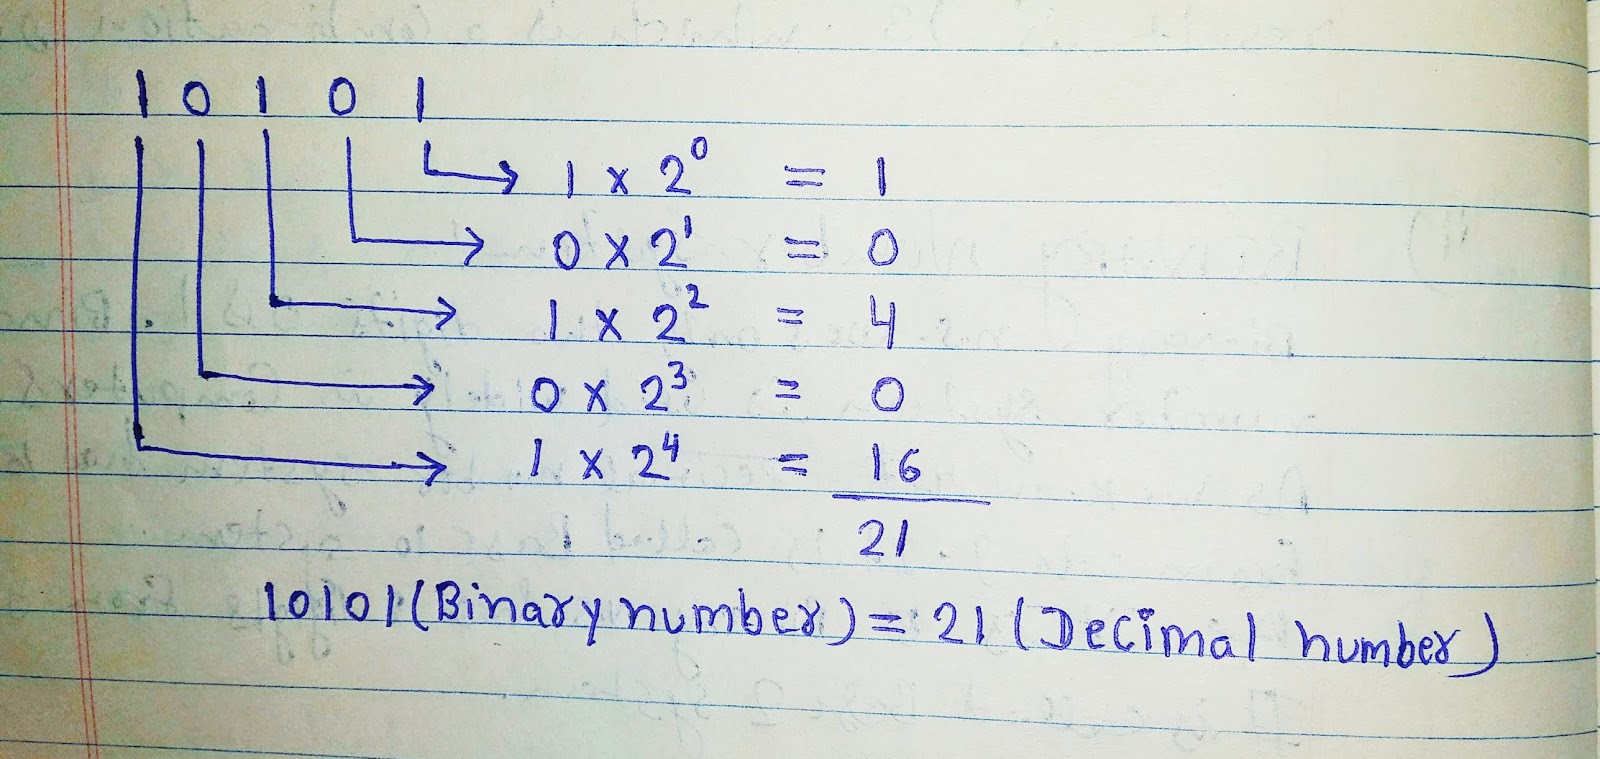 1 0 1 0 1
1 × 2⁰ = 1
0 × 2¹ = 0
1 × 2² = 4
0 × 2³ = 0
1 × 2⁴ = 16
21
10101 (Binary number) = 21 (Decimal number)